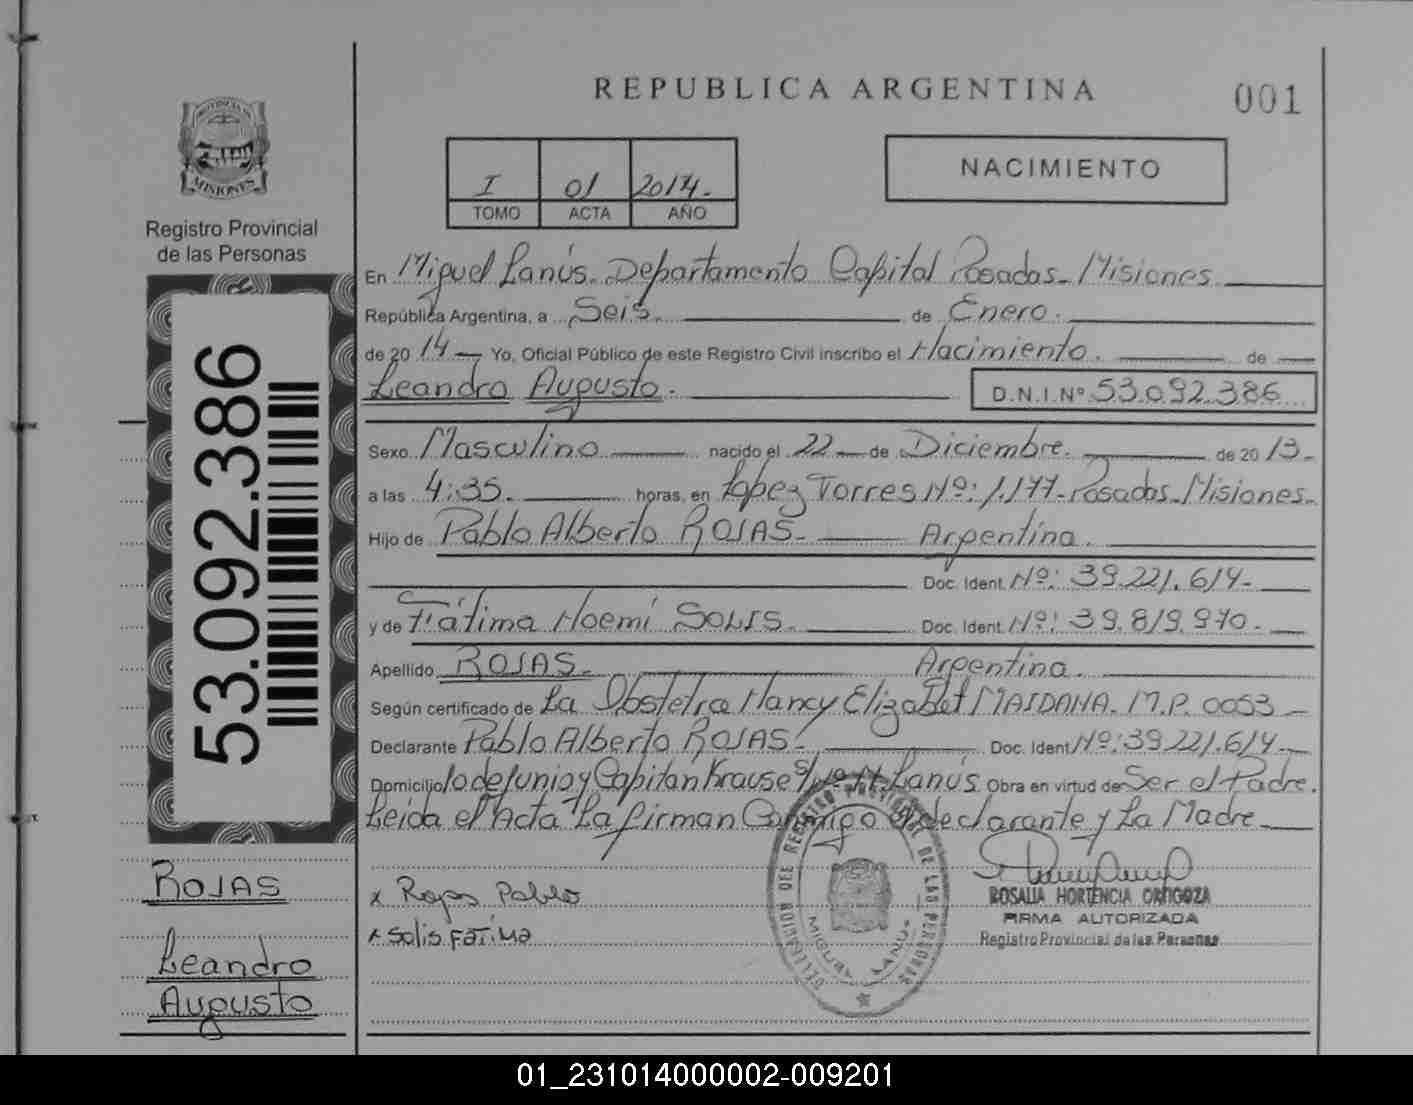 REPUBLICA ARGENTINA
001
PROVINCIA DE MISIONES
Registro Provincial
de las Personas
I 01 2014.-
TOMO ACTA AÑO
NACIMIENTO
53.092.386
En Miguel Lanús. Departamento Capital Posadas- Misiones
República Argentina, a Seis. de Enero.
de 2014 Yo, Oficial Público de este Registro Civil inscribo el Nacimiento. de
Leandro Augusto. D.N.I.Nº 53.092.386
Sexo Masculino nacido el 22 de Diciembre. de 2013.-
a las 4:35. horas, en López Torres Nº: 1.177- Posadas- Misiones-
Hijo de Pablo Alberto ROJAS- Argentina.
Doc. Ident. Nº: 39.221.614-
y de Fátima Noemí SOLIS. Doc. Ident. Nº: 39.819.970.-
Apellido ROJAS- Argentina.
Según certificado de La Obstetra Nancy Elizabet MAIDANA. M.P. 0053-
Declarante Pablo Alberto ROJAS- Doc. Ident Nº: 39.221.614-
Domicilio 10 de Junio y Capitan Krause s/nº M. Lanús Obra en virtud de Ser el Padre.
Leída el Acta La firman Conmigo el declarante y La Madre
ROJAS
Leandro
Augusto
x Rojas Pablo
x Solis FáTima
DELEGACION DEL REGISTRO PROVINCIAL DE LAS PERSONAS
MIGUEL LANUS
ROSALIA HORTENCIA ORTIGOZA
FIRMA AUTORIZADA
Registro Provincial de las Personas
01_231014000002-009201